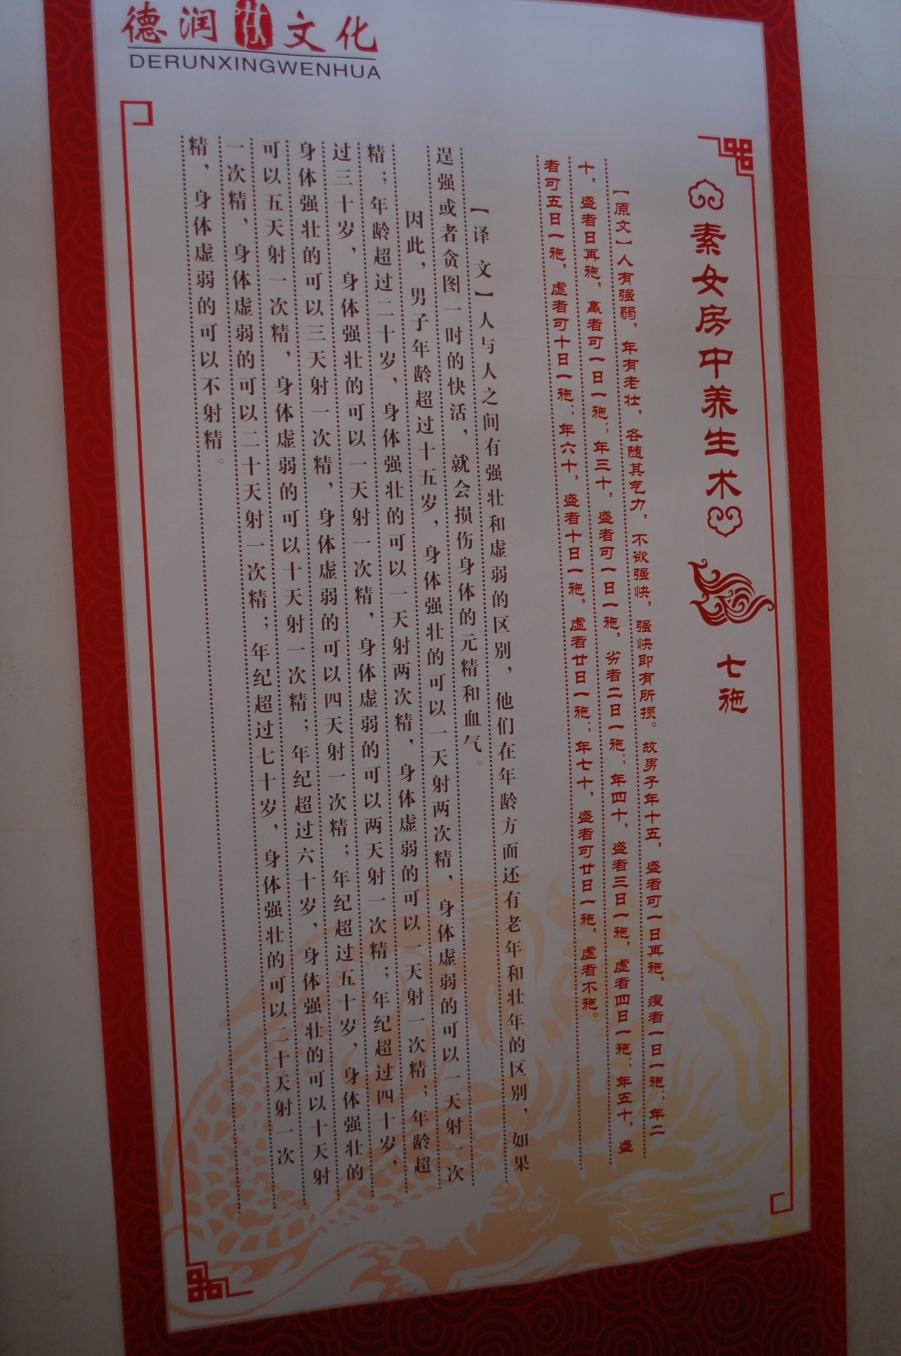 德润性文化
DERUNXINGWENHUA
素女房中养生术 七施
【原文】人有强弱，年有老壮，各随其气力，不欲强快，强快即有所损。故男子年十五，盛者可一日再施，瘦者一日一施；年二
十，盛者日再施，羸者可一日一施；年三十，盛者可一日一施，劣者二日一施；年四十，盛者三日一施，虚者四日一施；年五十，盛
者可五日一施，虚者可十日一施；年六十，盛者十日一施，虚者廿日一施；年七十，盛者可卅日一施，虚者不施。
【译文】人与人之间有强壮和虚弱的区别，他们在年龄方面还有老年和壮年的区别，如果
逞强或者贪图一时的快活，就会损伤身体的元精和血气。
因此，男子年龄超过十五岁，身体强壮的可以一天射两次精，身体虚弱的可以一天射一次
精；年龄超过二十岁，身体强壮的可以一天射两次精，身体虚弱的可以一天射一次精；年龄超
过三十岁，身体强壮的可以一天射一次精，身体虚弱的可以两天射一次精；年纪超过四十岁，
身体强壮的可以三天射一次精，身体虚弱的可以四天射一次精；年纪超过五十岁，身体强壮的
可以五天射一次精，身体虚弱的可以十天射一次精；年纪超过六十岁，身体强壮的可以十天射
一次精，身体虚弱的可以二十天射一次精；年纪超过七十岁，身体强壮的可以二十天射一次
精，身体虚弱的可以不射精。